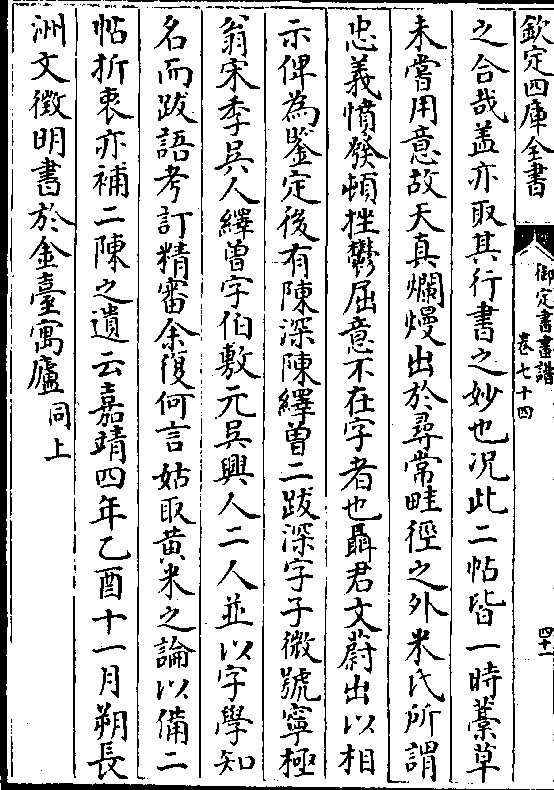 欽定四庫全書
御定書畫譜
卷七十四
四十一
之合哉盖亦取其行書之妙也况此二帖皆一時藁草
未嘗用意故天真爛熳出於尋常畦徑之外米氏所謂
忠義憤發頓挫鬱屈意不在字者也聶君文蔚出以相
示俾為鉴定後有陳深陳繹曽二跋深字子微號寧極
翁宋季吳人繹曽字伯敷元吳興人二人並以字學知
名而跋語考訂精審余復何言姑取黄米之論以備二
帖折衷亦補二陳之遺云嘉靖四年乙酉十一月朔長
洲文徵明書於金臺寓廬同上